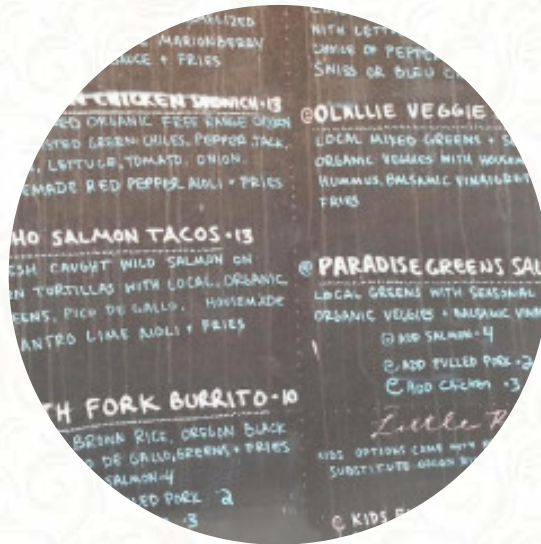 MARIONBERRY
SAUCE + FRIES
CHICKEN SANDWICH • 13
ORGANIC FREE RANGE CHICKEN
GREEN CHILES, PEPPER JACK,
LETTUCE, TOMATO, ONION,
EMADE RED PEPPER AIOLI + FRIES
HO SALMON TACOS • 13
ESH CAUGHT WILD SALMON ON
N TORTILLAS WITH LOCAL, ORGANIC
EENS, PICO DE GALLO, HOUSEMADE
ANTRO LIME AIOLI + FRIES
TH FORK BURRITO • 10
BROWN RICE, OREGON BLACK
O DE GALLO, GREENS + FRIES
SALMON - 4
LED PORK 2
- 3
WITH LETT
CHOICE OF PEPPE
SWISS OR BLEU C
OLALLIE VEGGIE
LOCAL MIXED GREENS + S
ORGANIC VEGGIES WITH HOUSEM
HUMMUS, BALSAMIC VINAIGRET
FRIES
PARADISE GREENS SAL
LOCAL GREENS WITH SEASONAL
ORGANIC VEGGIES + BALSAMIC VINA
ADD SALMON - 4
ADD PULLED PORK - 2
ADD CHICKEN - 3
Little
KIDS OPTIONS COME WITH
SUBSTITUTE
KIDS